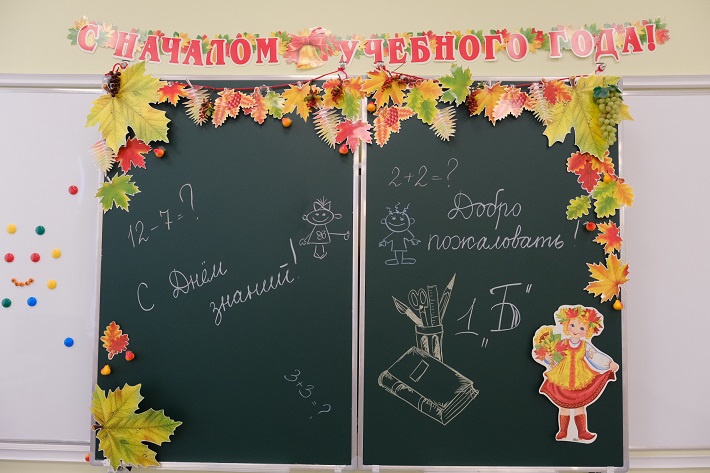 С НАЧАЛОМ УЧЕБНОГО ГОДА!
12-7=?
С Днём
знаний!
3+3=?
2+2=?
Добро
пожаловать!
1 "Б"